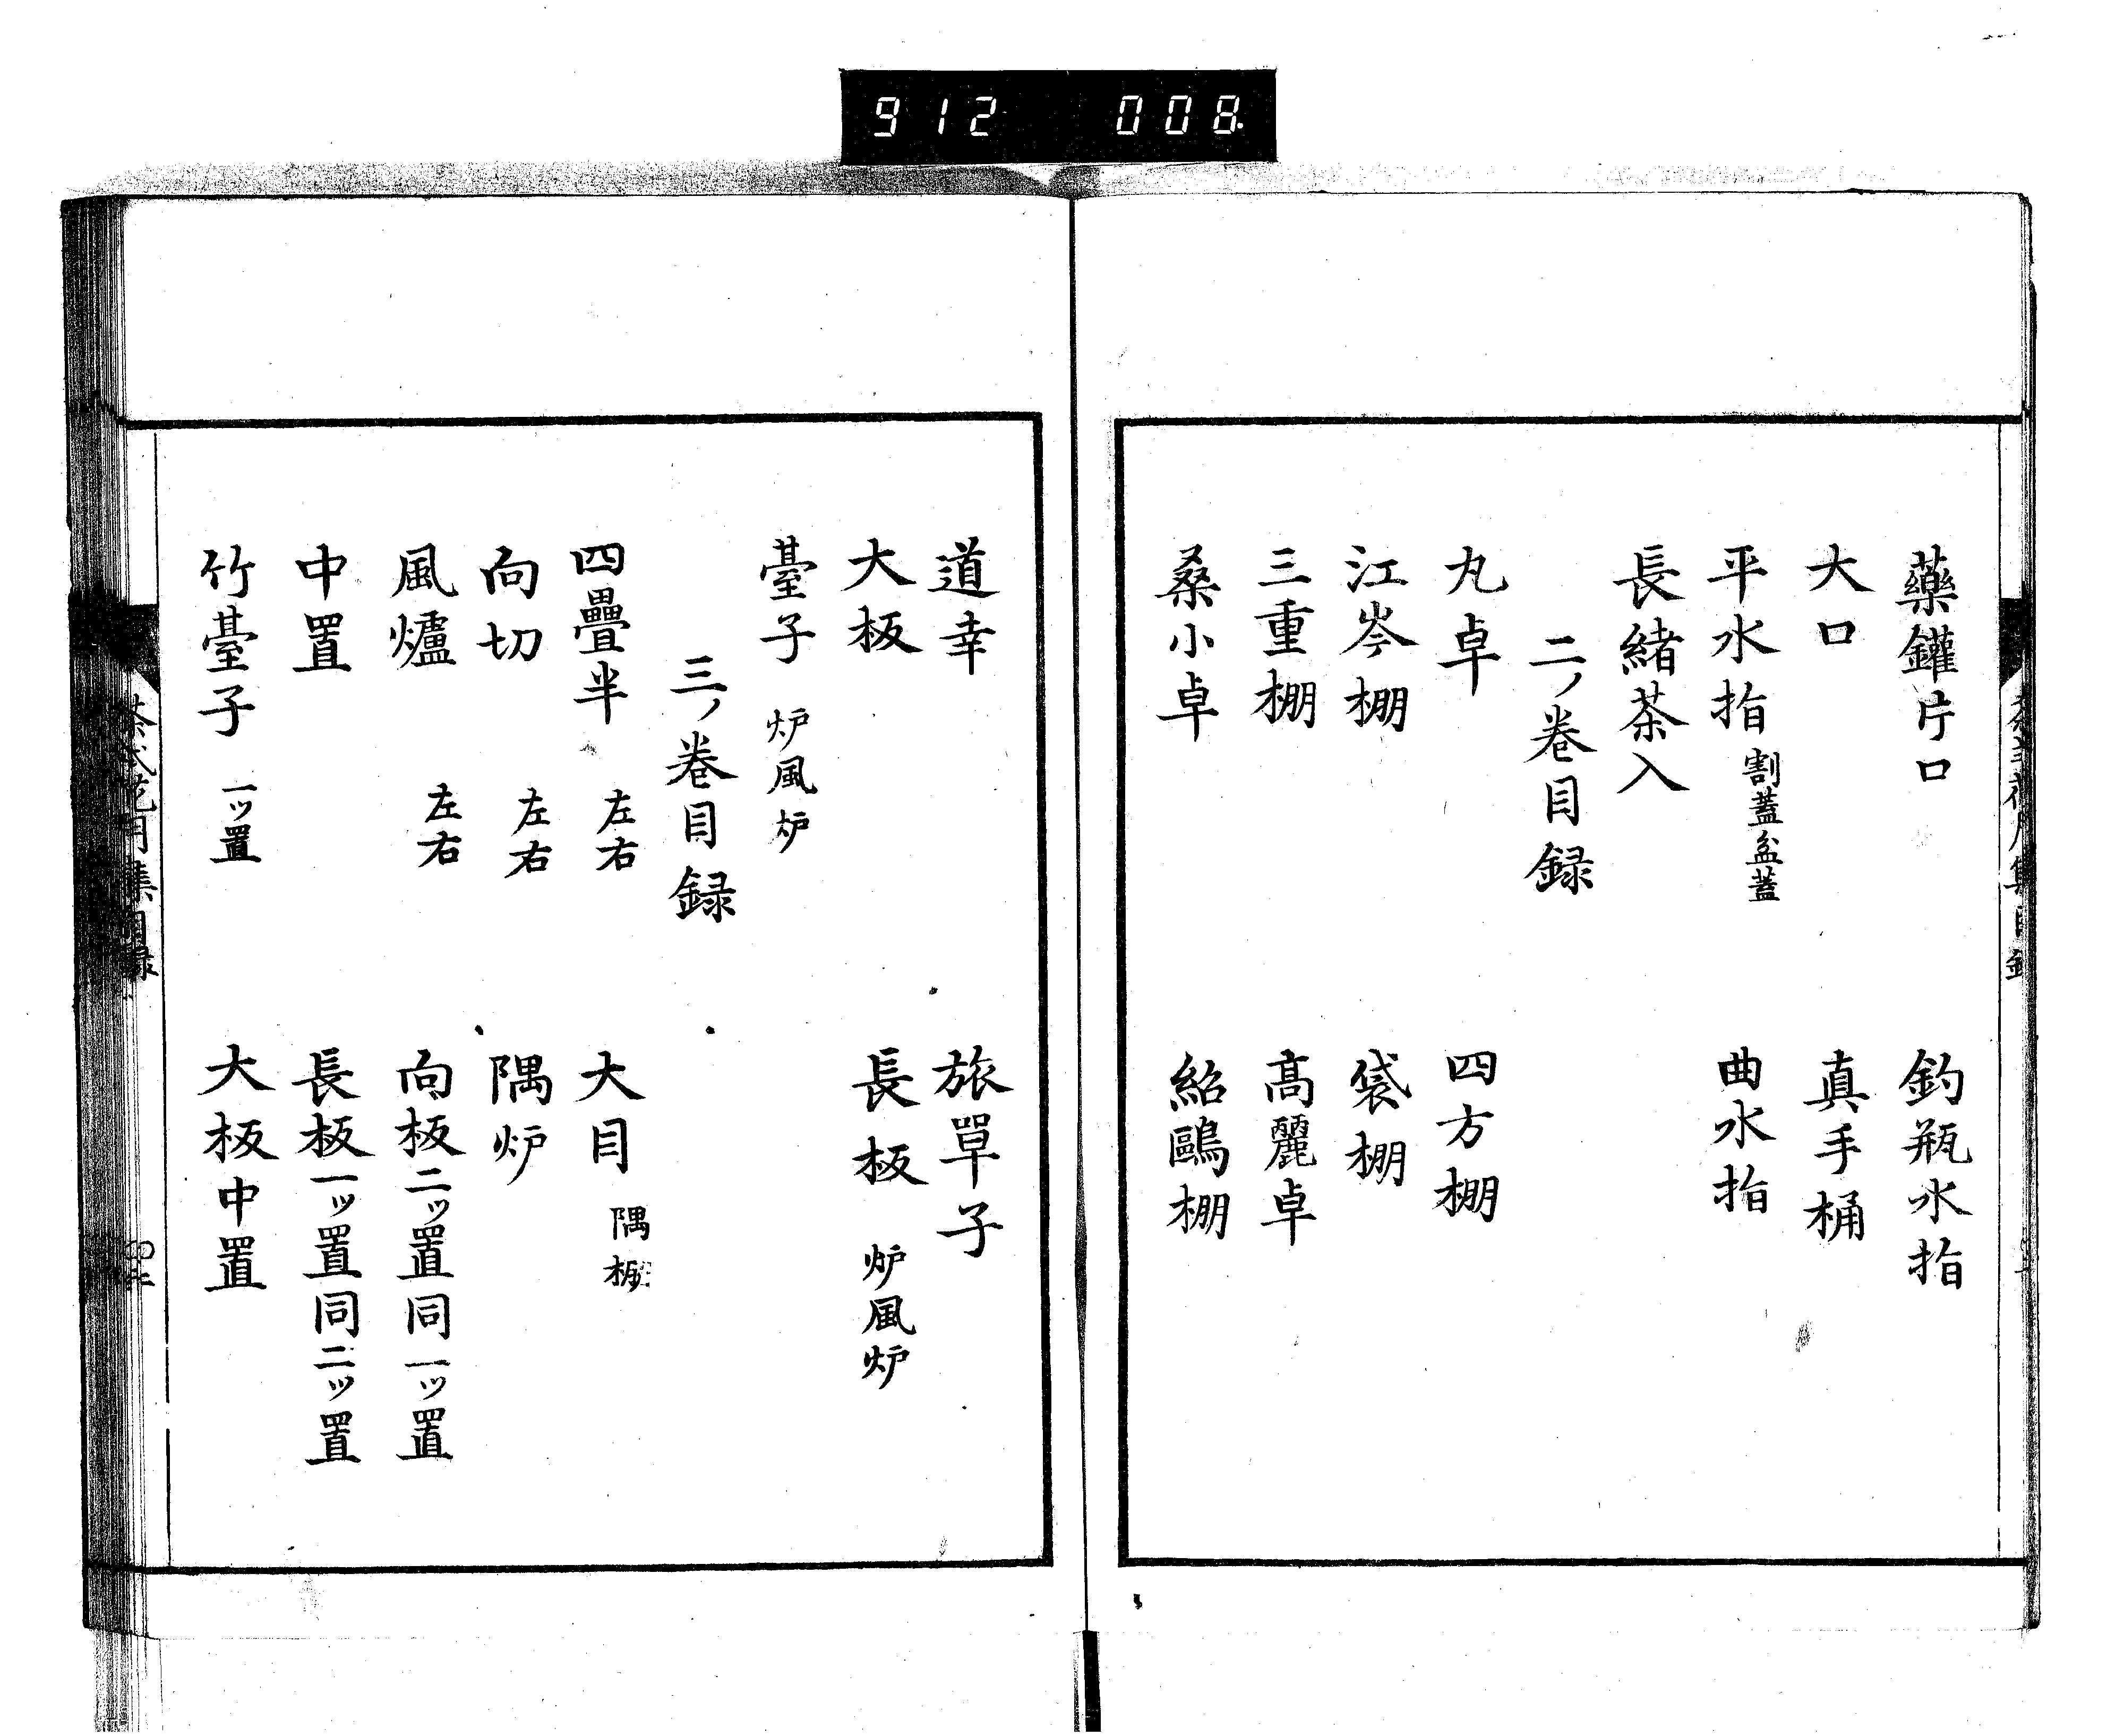 912 008
藥鑵片口 釣瓶水指
大口 真手桶
平水指 割蓋盆蓋 曲水指
長緒茶入
二ノ巻目録
丸卓 四方棚
江岑棚 袋棚
三重棚 高麗卓
桑小卓 紹鷗棚
道幸 旅單子
大板 長板 炉風炉
臺子 炉風炉
三ノ巻目録
四疊半 左右 大目 隅棚
向切 左右 隅炉
風爐 左右 向板二ッ置同一ッ置
中置 長板一ッ置同二ッ置
竹臺子 一ッ置 大板中置